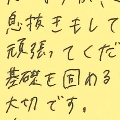 息抜きもして
頑張ってくだ
基礎を固める
大切です。